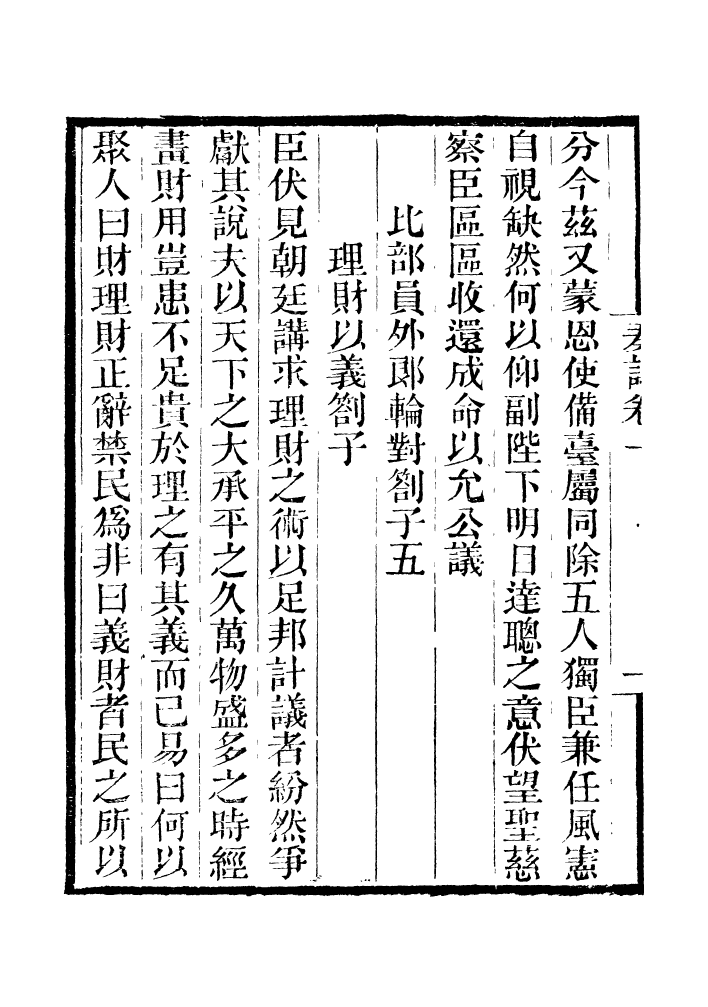 奏議卷一
一
分今茲又蒙恩使備臺屬同除五人獨臣兼任風憲
自視缺然何以仰副陛下明目達聰之意伏望聖慈
察臣區區收還成命以允公議
比部員外郎輪對劄子五
理財以義劄子
臣伏見朝廷講求理財之術以足邦計議者紛然爭
獻其說夫以天下之大承平之久萬物盛多之時經
畫財用豈患不足貴於理之有其義而已易曰何以
聚人曰財理財正辭禁民爲非曰義財者民之所以